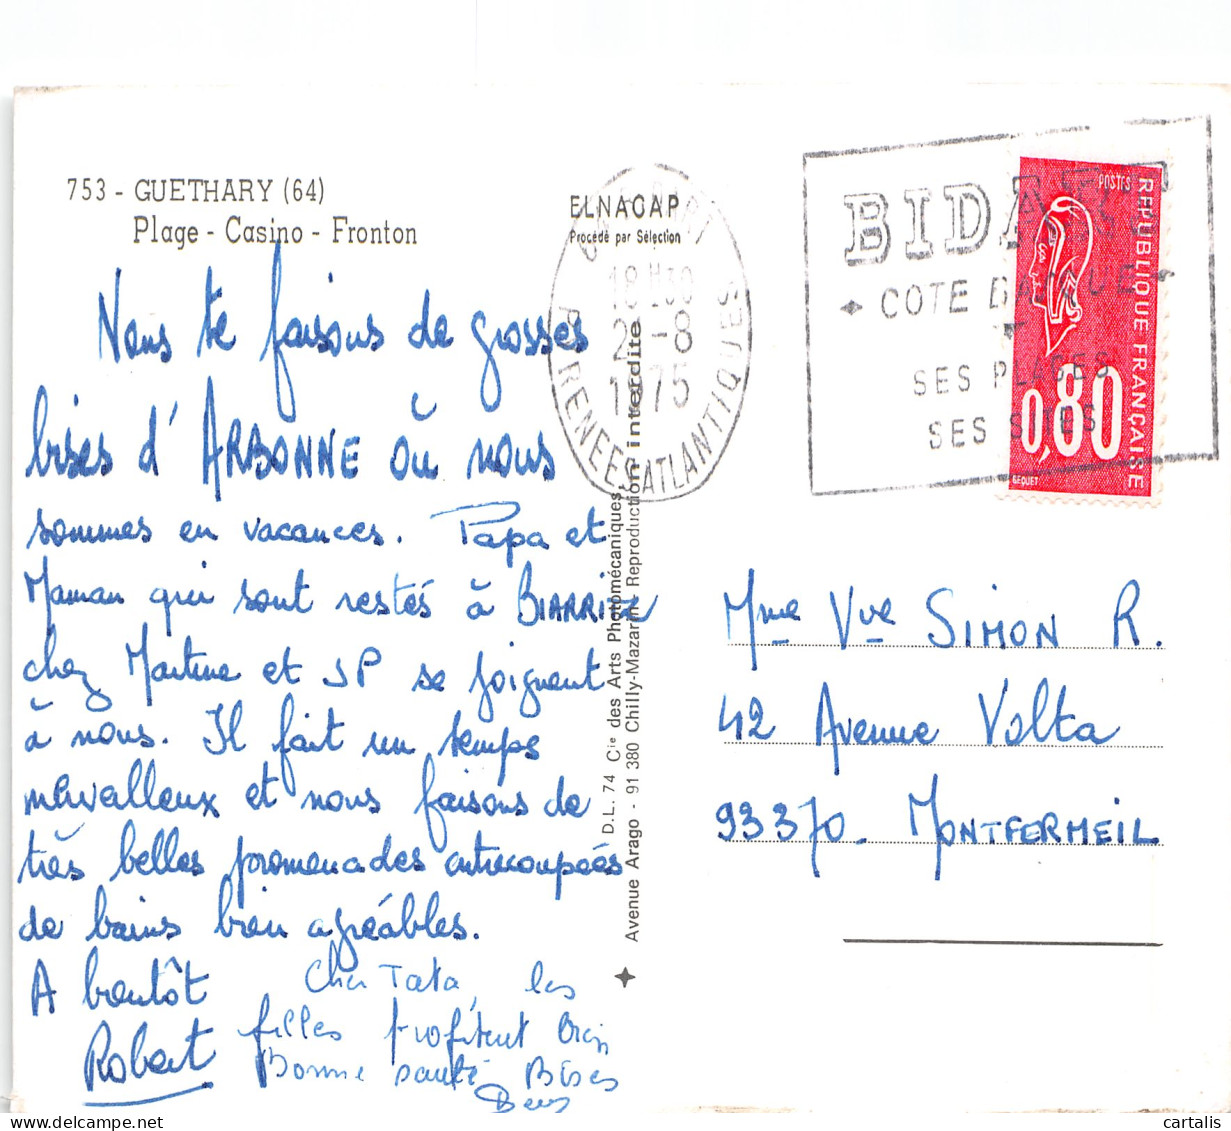 753 - GUETHARY (64)
Plage - Casino - Fronton
Nous te faisons de grosses
bises d'ARBONNE où nous
sommes en vacances. Papa et
Maman qui sont restés à BIARRITZ
chez Martine et JP se joignent
à nous. Il fait un temps
merveilleux et nous faisons de
très belles promenades entrecoupées
de bains bien agréables.
A bientôt
Robert
Cher Tata, les
filles profitent bien
Bonne santé Bises
ELNACAP
Procédé par Sélection
D.L. 74 Cie des Arts Photomécaniques
Avenue Arago - 91 380 Chilly-Mazarin - Reproduction interdite
18H30
-8
1975
PYRENEES ATLANTIQUES
BIDART
COTE BASQUE
SES PLAGES
SES SITES
POSTES
REPUBLIQUE FRANÇAISE
0,80
BEQUET
Mme Vve SIMON R.
42 Avenue Volta
93370. MONTFERMEIL
cartalis